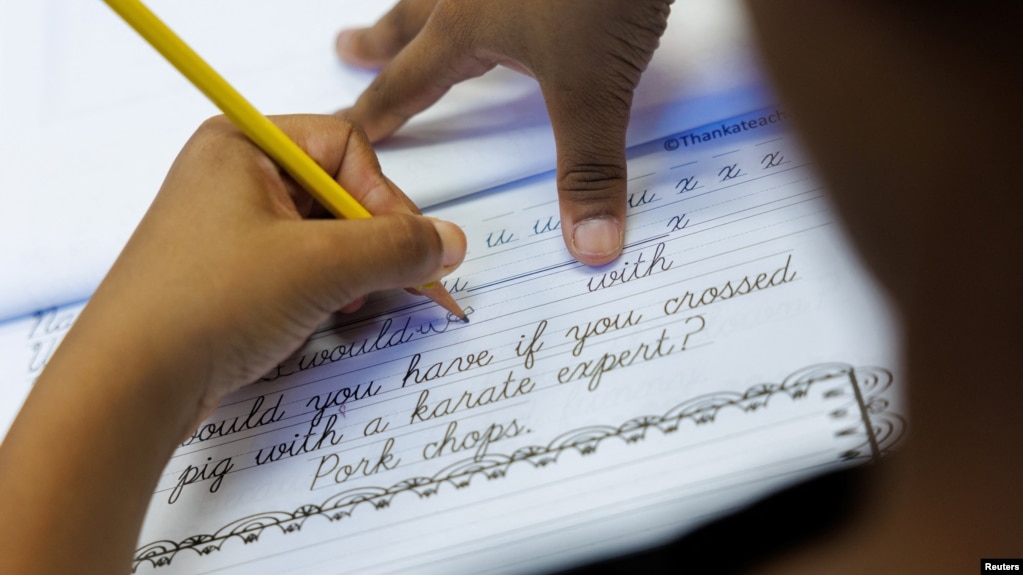 ©Thankateach
u u u x x x
u x
with
would
would you have if you crossed
pig with a karate expert?
Pork chops.
Reuters